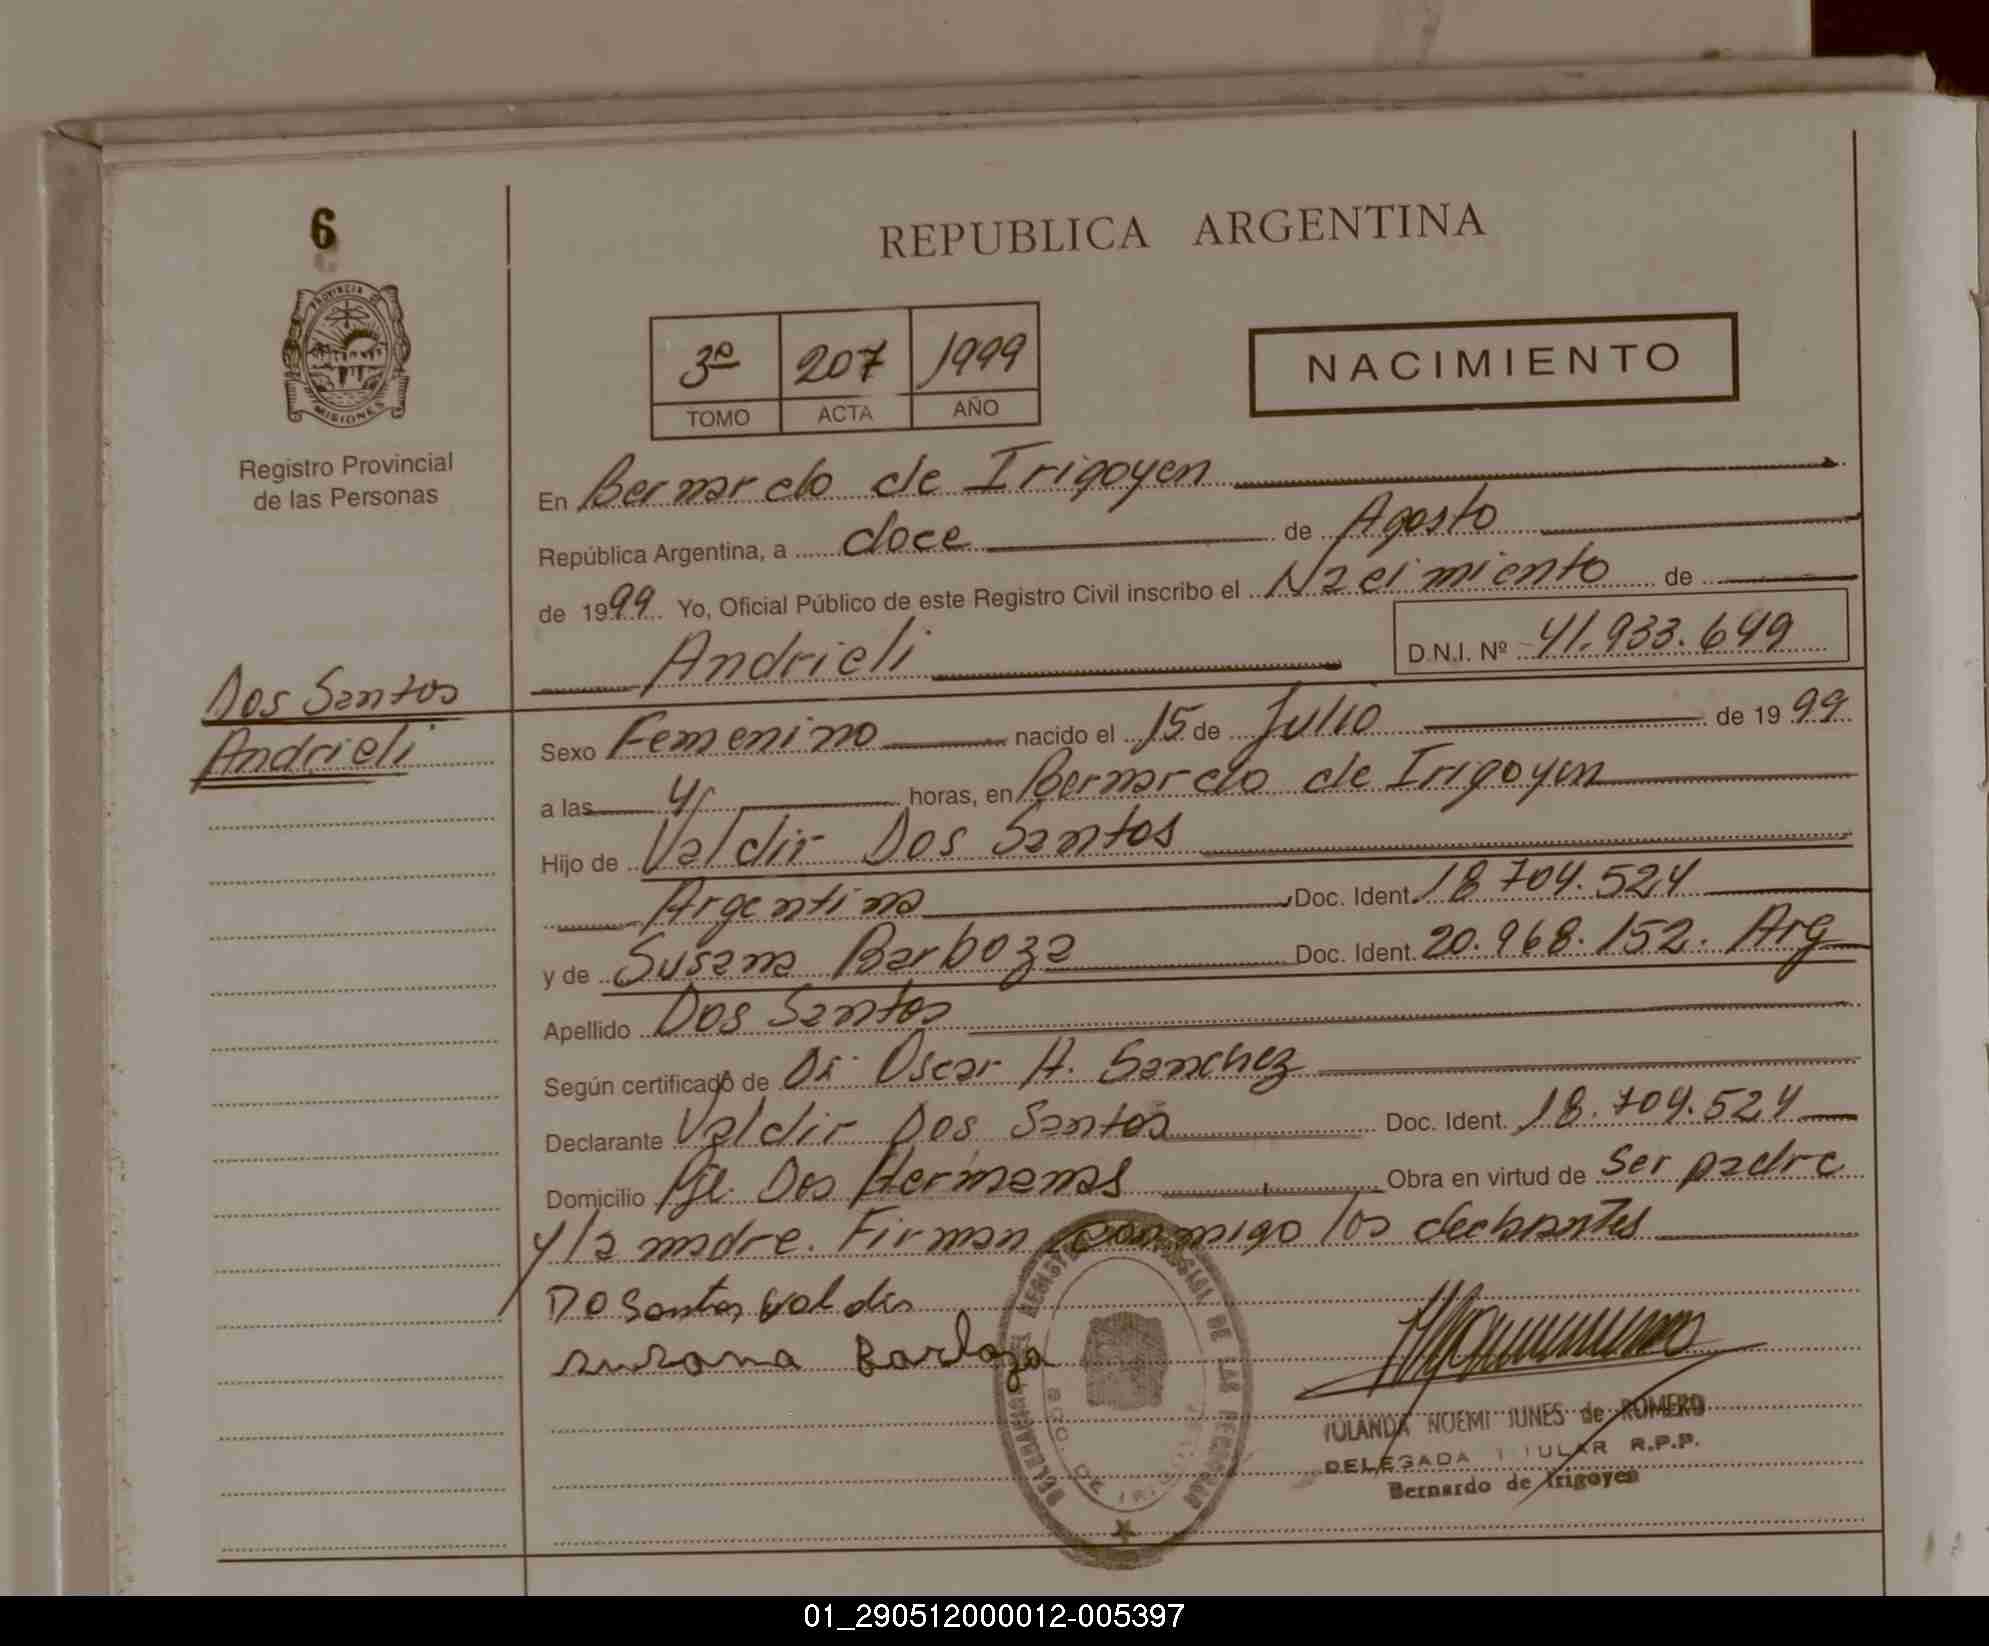 6
PROVINCIA DE
MISIONES
Registro Provincial
de las Personas
Dos Santos
Andrieli
REPUBLICA ARGENTINA
3º 207 1999
TOMO ACTA AÑO
NACIMIENTO
En Bernardo de Irigoyen
República Argentina, a doce de Agosto
de 1999 Yo, Oficial Público de este Registro Civil inscribo el Nacimiento de
Andrieli D.N.I. Nº 41.933.649
Sexo Femenino nacido el 15 de Julio de 1999
a las 4 horas, en Bernardo de Irigoyen
Hijo de Valdir Dos Santos
Argentino Doc. Ident. 18.704.524
y de Susana Barboza Doc. Ident. 20.968.152. Arg
Apellido Dos Santos
Según certificado de Dr. Oscar A. Sanchez
Declarante Valdir Dos Santos Doc. Ident. 18.704.524
Domicilio Pje. Dos Hermanas Obra en virtud de Ser padre
y la madre. Firman conmigo los declarantes
DO Santos Valdir
Susana Barboza
NOEMI JUNES de ROMERO
DELEGADA TITULAR R.P.P.
Bernardo de Irigoyen
DE LAS
01_290512000012-005397